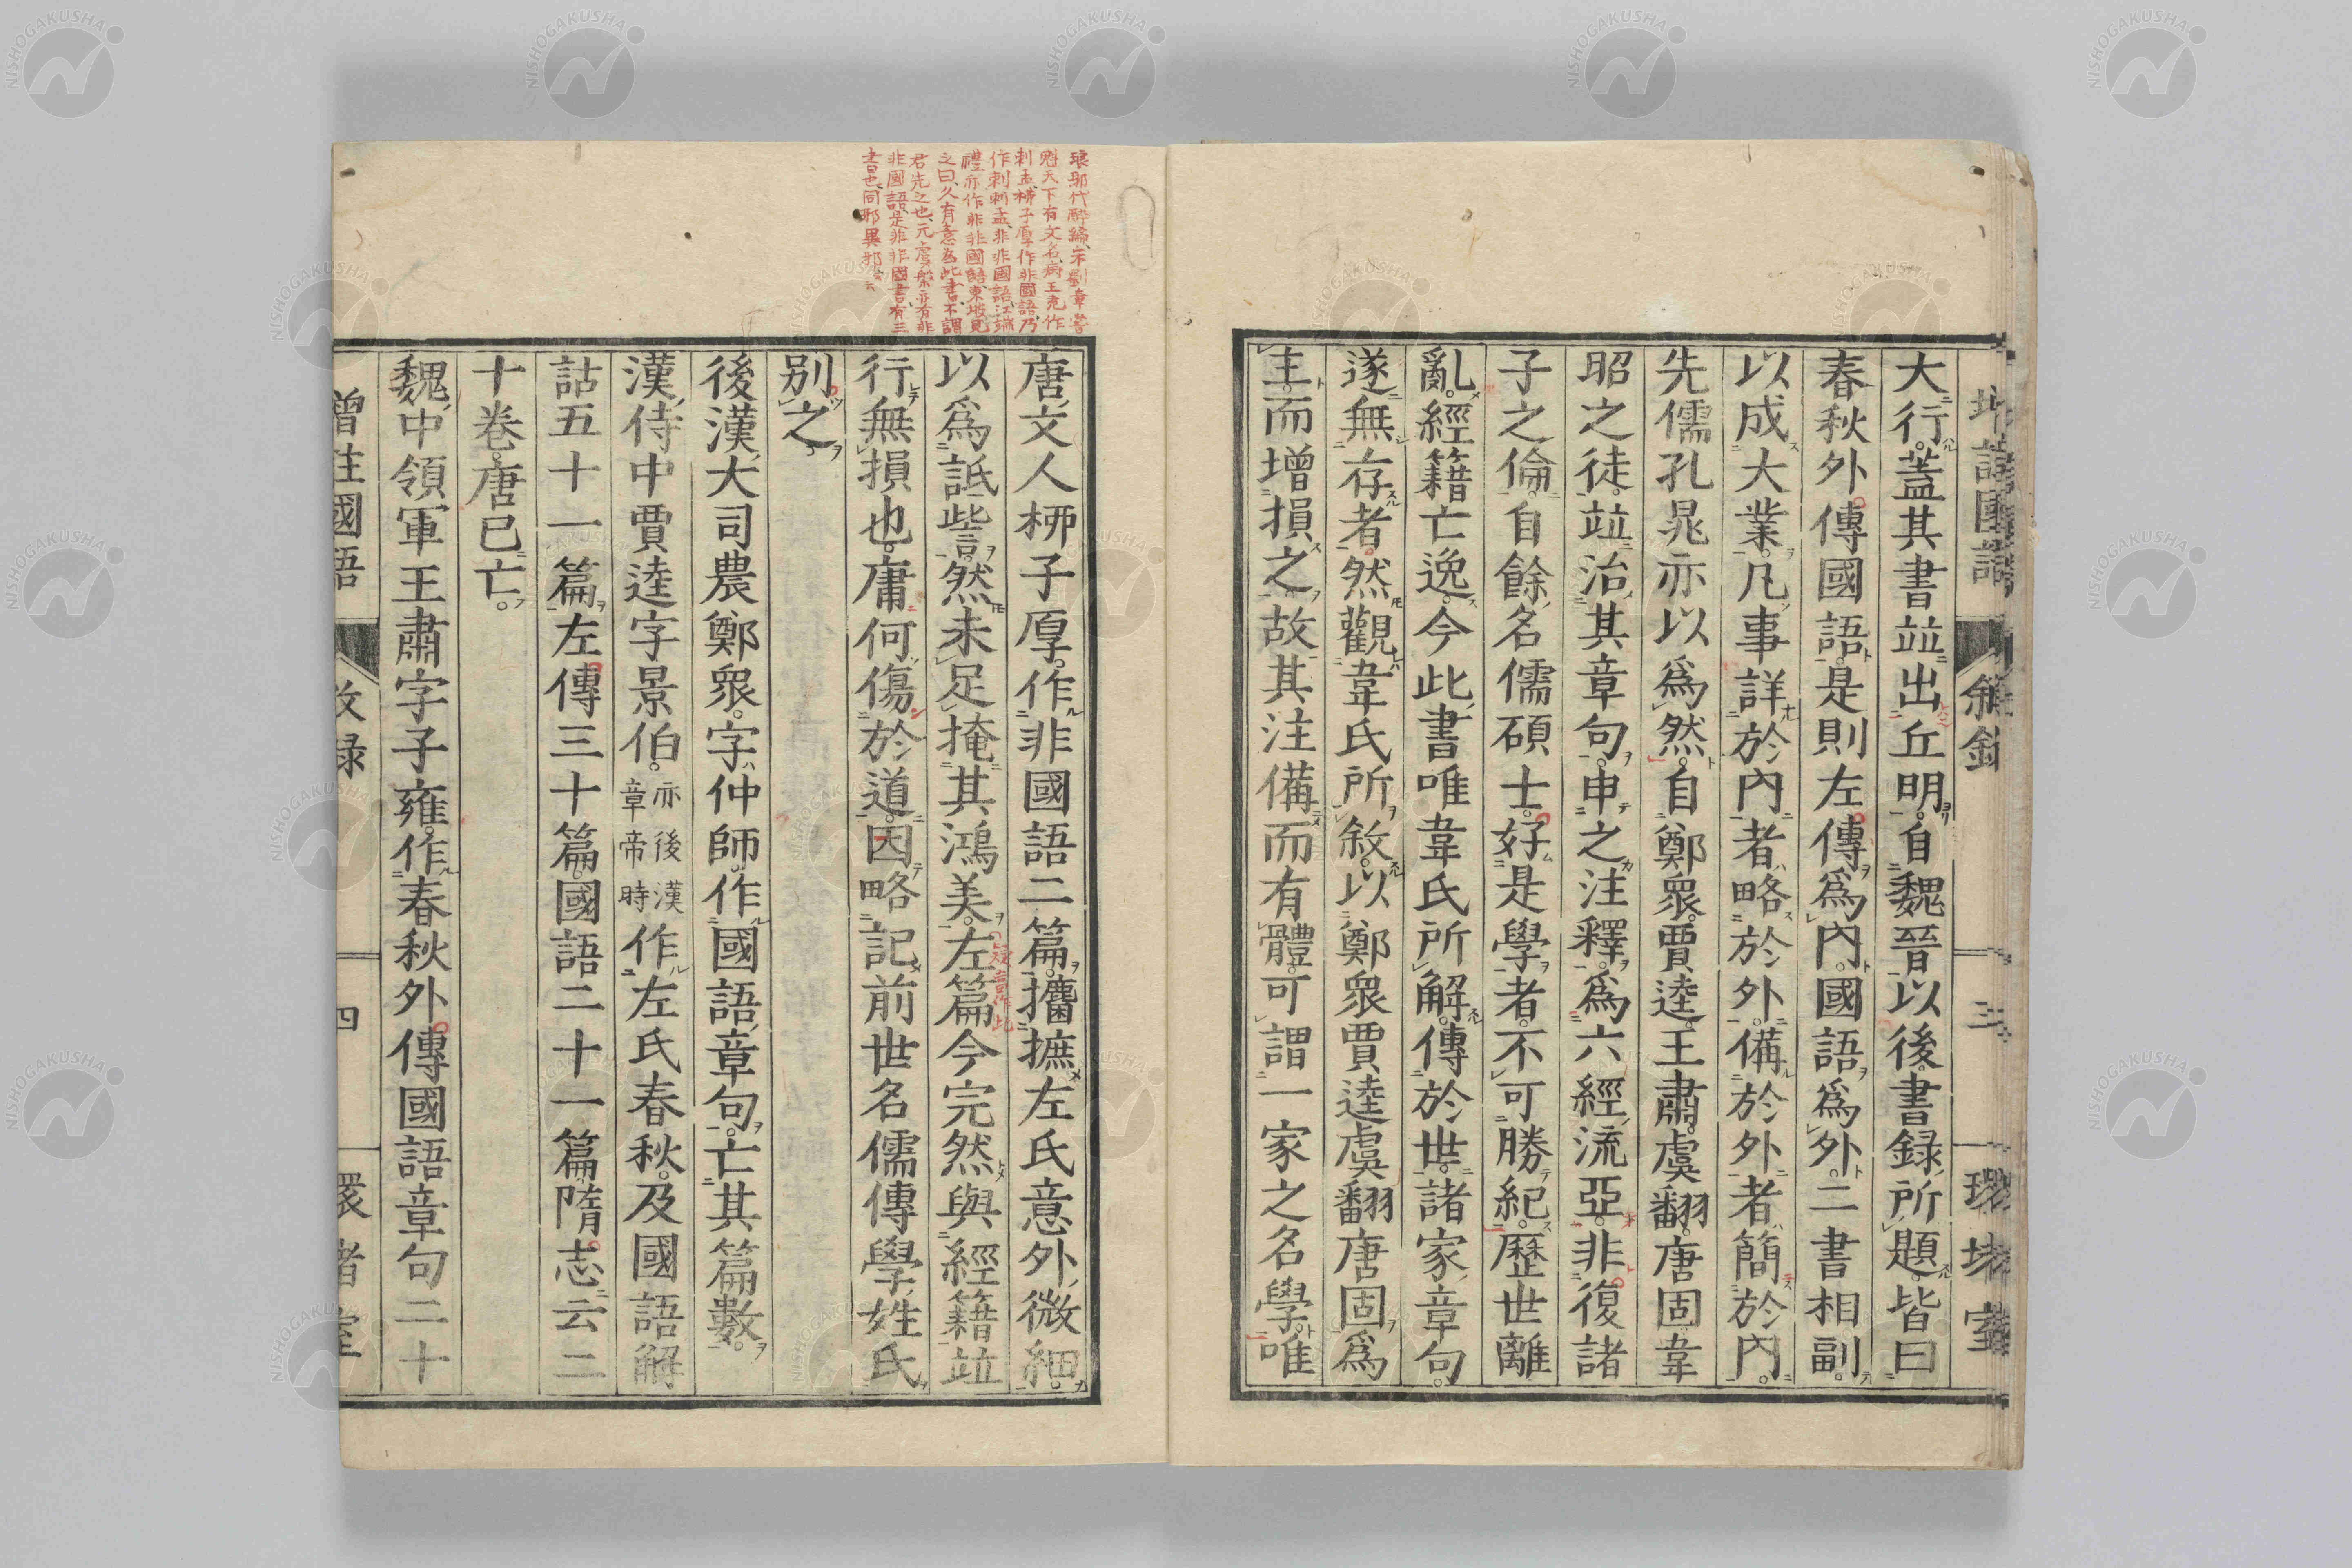 大行。蓋其書竝出丘明。自魏晉以後。書錄所題。皆曰
春秋外傳國語。是則左傳爲內。國語爲外。二書相副。
以成大業。凡事詳於內者略於外。備於外者簡於內。
先儒孔晁亦以爲然。自鄭眾。賈逵。王肅。虞翻。唐固。韋
昭之徒。竝治其章句。申之注釋。爲六經流亞。非復諸
子之倫。自餘名儒碩士。好是學者。不可勝紀。歷世離
亂。經籍亡逸。今此書唯韋氏所解。傳於世。諸家章句。
遂無存者。然觀韋氏所敘。以鄭眾賈逵虞翻唐固爲
主而增損之。故其注備而有體。可謂一家之名學。唯
琅邪代醉編宋劉章嘗
魁天下有文名病王充作
刺孟柳子厚作非國語乃
作刺刺孟非非國語江端
禮亦作非非國語東坡見
之曰久有意爲此書不謂
君先之也元虞槃亦有非
非國語是非非國書有三
書也同邪異邪云
唐文人柳子厚。作非國語二篇。攟摭左氏意外微細。
以爲詆訾。然未足掩其鴻美。左篇今完然與經籍竝
行無損也。庸何傷於道。因略記前世名儒傳學姓氏
別之。
後漢大司農鄭眾。字仲師。作國語章句。亡其篇數。
漢侍中賈逵字景伯。亦後漢章帝時作左氏春秋。及國語解
詁五十一篇。左傳三十篇。國語二十一篇。隋志云二
十卷。唐已亡。
魏中領軍王肅字子雍。作春秋外傳國語章句二十
增註國語
四